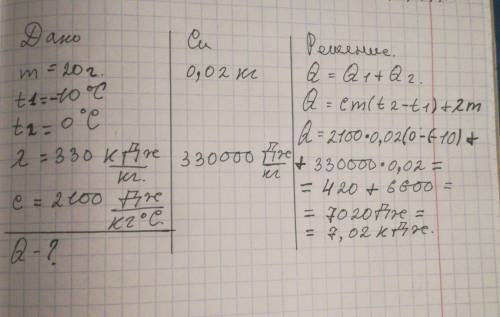 Дано
m = 20 г.
t1 = -10 °C
t2 = 0 °C
λ = 330 кДж/кг.
c = 2100 Дж/кг °C.
Q - ?
Си
0,02 кг
330000 Дж/кг
Решение.
Q = Q1 + Q2.
Q = cm(t2 - t1) + λm
Q = 2100 · 0,02(0 - (-10) +
+ 330000 · 0,02 =
= 420 + 6600 =
= 7020 Дж =
= 7,02 кДж.